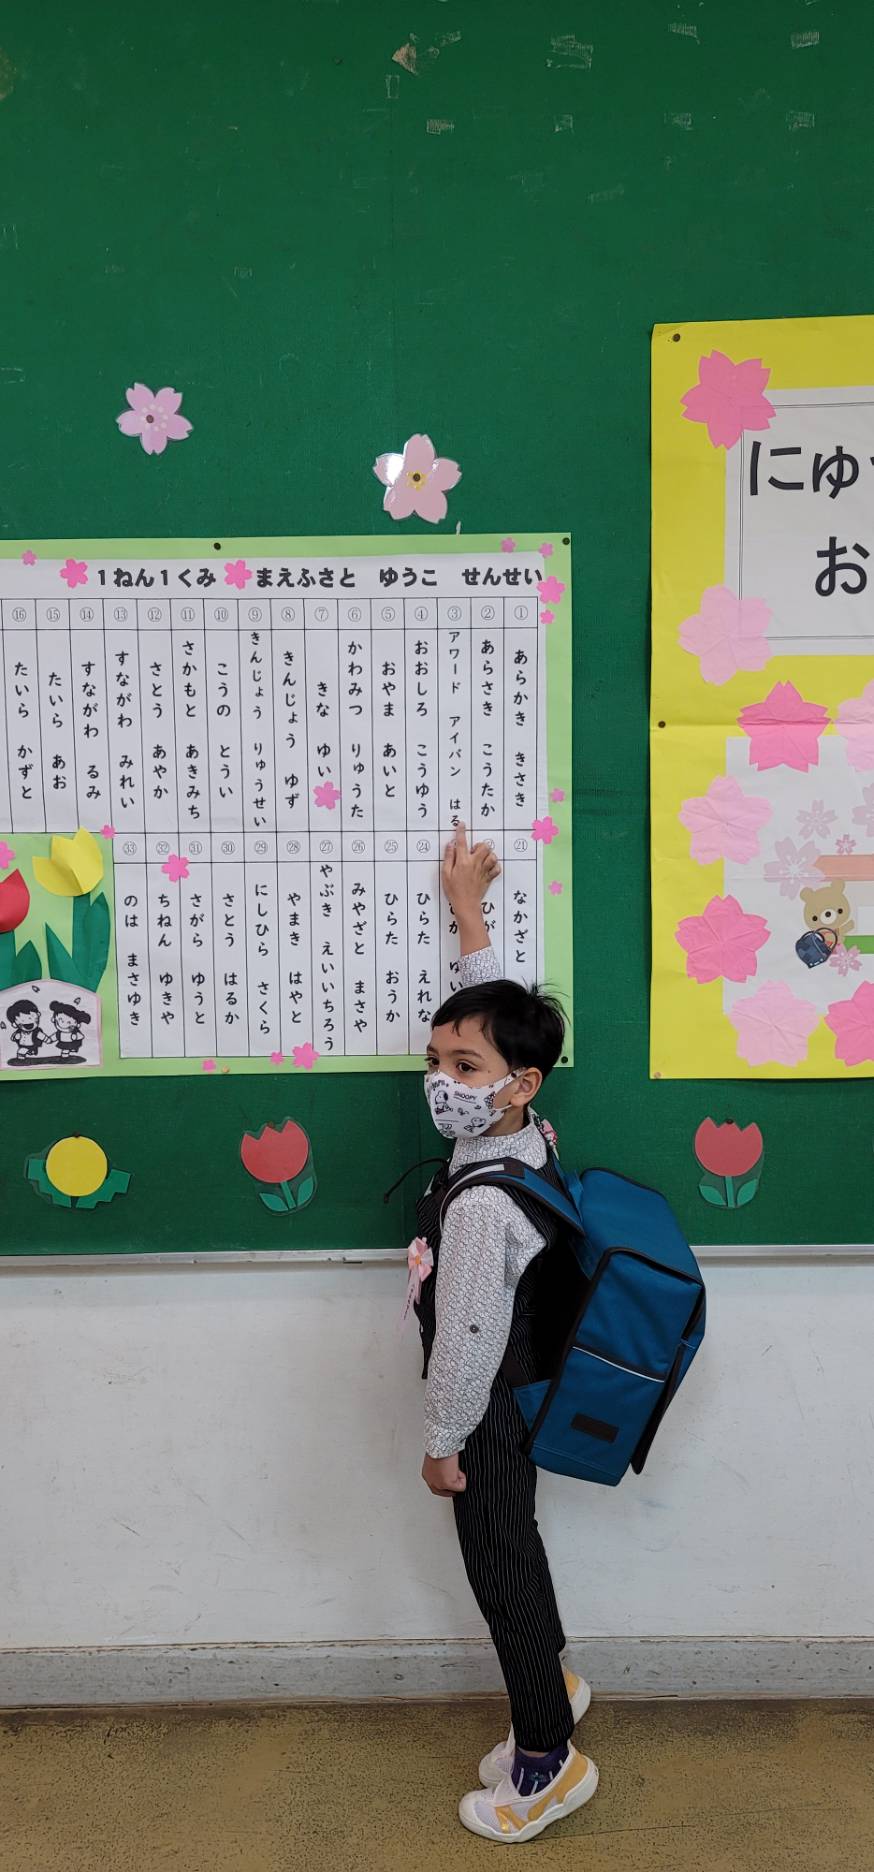 1ねん1くみ まえふさと ゆうこ せんせい
① あらかき きさき
② あらさき こうたか
③ アワード アイバン はる
④ おおしろ こうゆう
⑤ おやま あいと
⑥ かわみつ りゅうた
⑦ きな ゆい
⑧ きんじょう ゆず
⑨ きんじょう りゅうせい
⑩ こうの とうい
⑪ さかもと あきみち
⑫ さとう あやか
⑬ すながわ みれい
⑭ すながわ るみ
⑮ たいら あお
⑯ たいら かずと
㉑ なかざと
ひが
ゆい
㉔ ひらた えれな
㉕ ひらた おうか
㉖ みやざと まさや
㉗ やぶき えいいちろう
㉘ やまき はやと
㉙ にしひら さくら
㉚ さとう はるか
㉛ さがら ゆうと
㉜ ちねん ゆきや
㉝ のは まさゆき
にゅ
お
SNOOPY